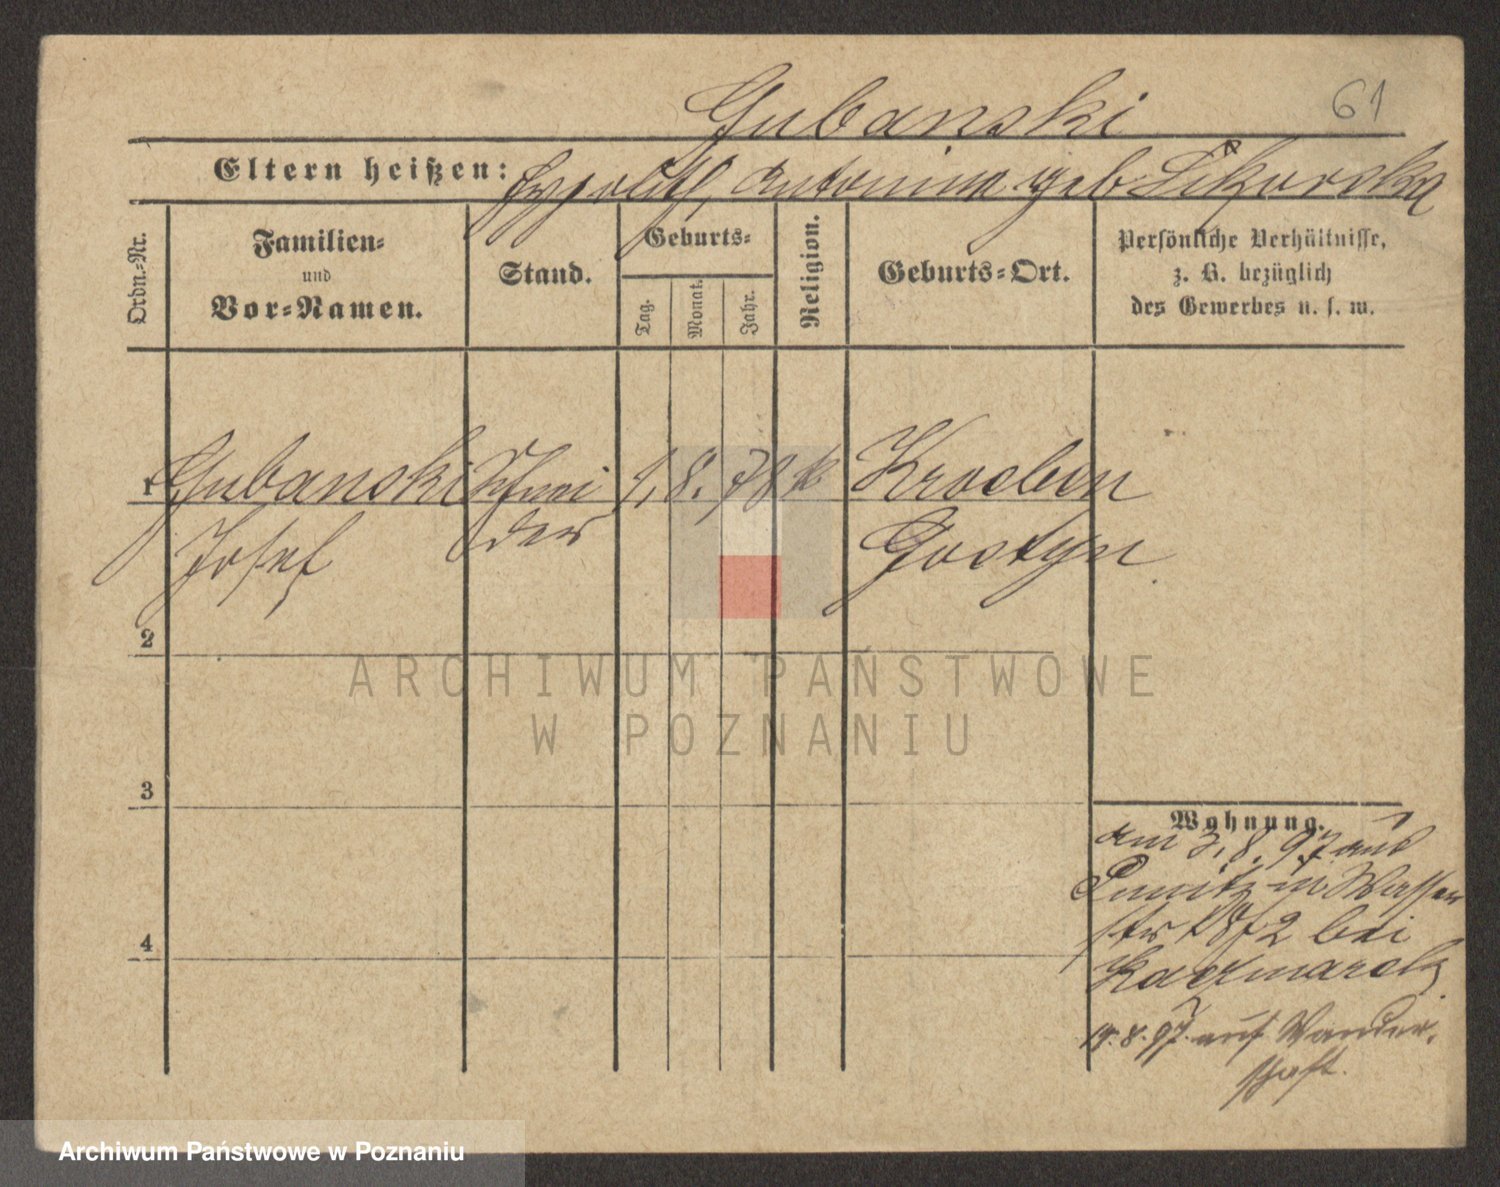 Gubanski
61
Eltern heißen: Hypolith, Antonina geb Sikorska
Ordn.-Nr.
Familien-
und
Vor-Namen.
Stand.
Geburts-
Tag.
Monat.
Jahr.
Religion.
Geburts-Ort.
Persönliche Verhältnisse,
z. B. bezüglich
des Gewerbes u. s. w.
1 Gubanski Schnei 1. 8. 78 k Kroeben
Josef der Gostyn
2
3
4
Wohnung.
am 3.8.97 aus
Punitz in Wasser
str bei
Kaczmarek
19.8.97. auf Wander-
schaft.
ARCHIWUM PAŃSTWOWE
W POZNANIU
Archiwum Państwowe w Poznaniu